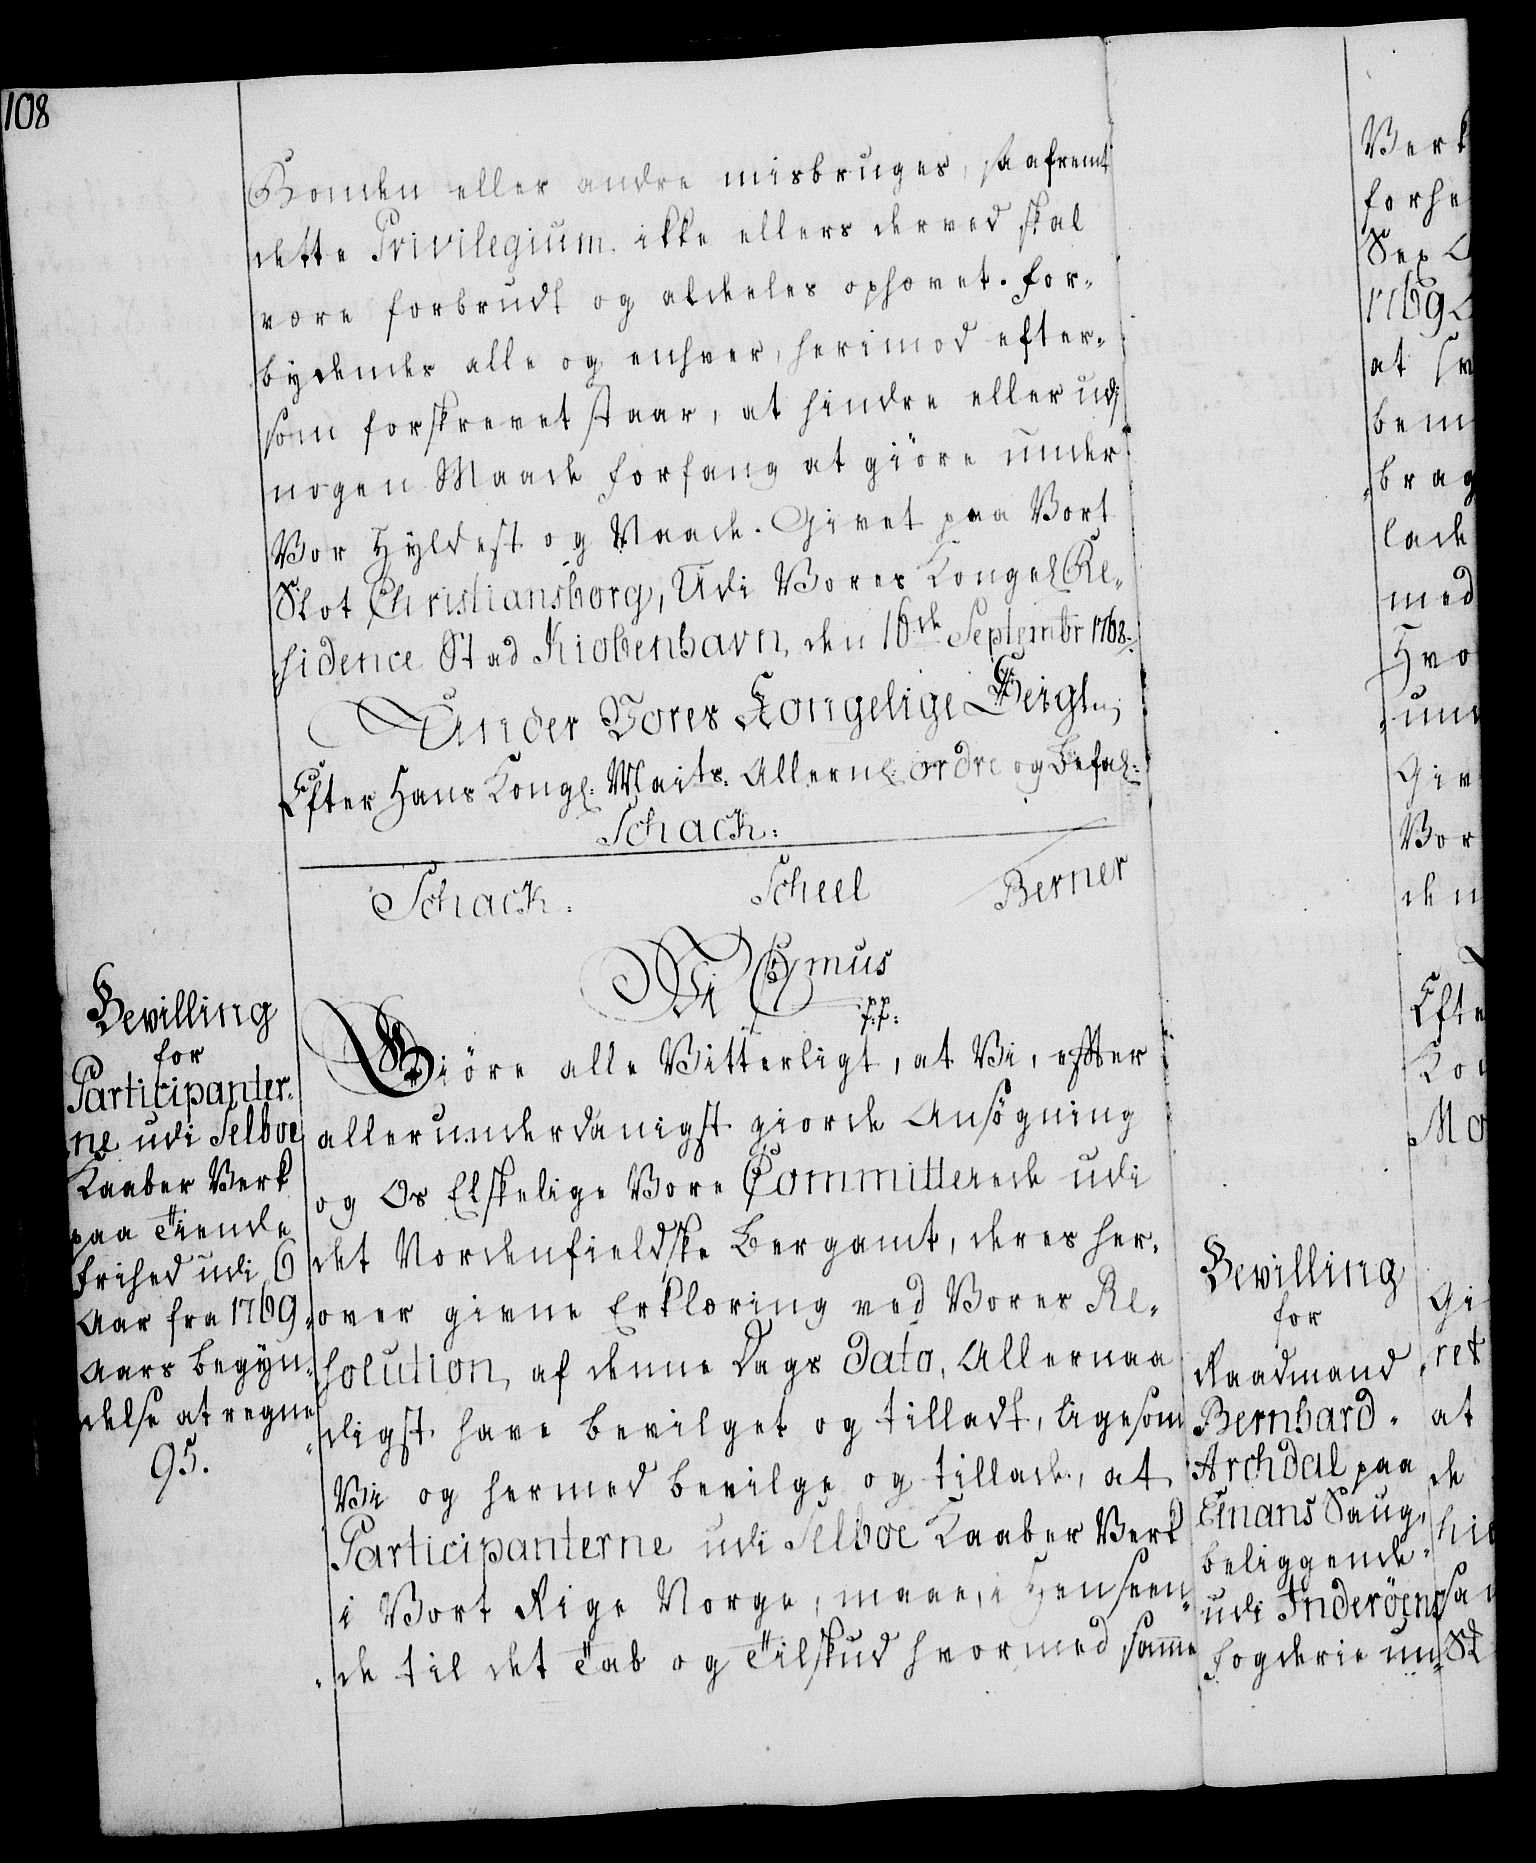 108
Bonden eller andre misbruges, saafremt
dette Privilegium ikke ellers derved skal
være forbrudt og aldeles ophævet. For-
bydendes alle og enhver, herimod efter-
som forskrevet staar, at hindre eller udj
nogen Maade forfang at giöre under
Vor Hyldest og Naade. Givet paa Vort
Slot Christiansborg, Udi Vores Kongel Re-
sidence Stad Kiøbenhavn, den 16de Septembr 1768.
Under Vores Kongelige Seigl.
Efter Hans Kongl: Maits: Allernl: ordre og Befal:
Schack:
Schack: Scheel Berner
Vi C7mus
p.p:
Giöre alle Vitterligt, at Vi, efter
allerunderdanigst giorde Ansögning
og Os Elskelige Vore Committerede udi
det Nordenfieldske Bergamt, deres her-
over givne Erklæring ved Vores Re-
solution, af denne Dags Dato, Allernaa
digst have bevilget og tilladt, ligesom
Vi og hermed bevilge og tillade, at
Participanterne udi Selboe Kaaber Verk
i Vort Rige Norge, maae, i Henseen-
de til det Tab og Tilskud hvormed samme
Bevilling
for
Participanter-
ne udi Selboe
Kaaber Verk
paa Tiende
frihed udi 6
Aar fra 1769
Aars begyn-
delse at regne
95.
Bevilling
for
Raadmand
Bernhard
Archdal paa
Saug,
beliggende
udi Inderöens
Fogderie un-
Verk
forhe
Sex
1769
at
bem
brag
lade
med
Hvo
un
Giv
Vor
den
Efte
Ko
Mo
Gi
ret
at
de
hid
sa
St